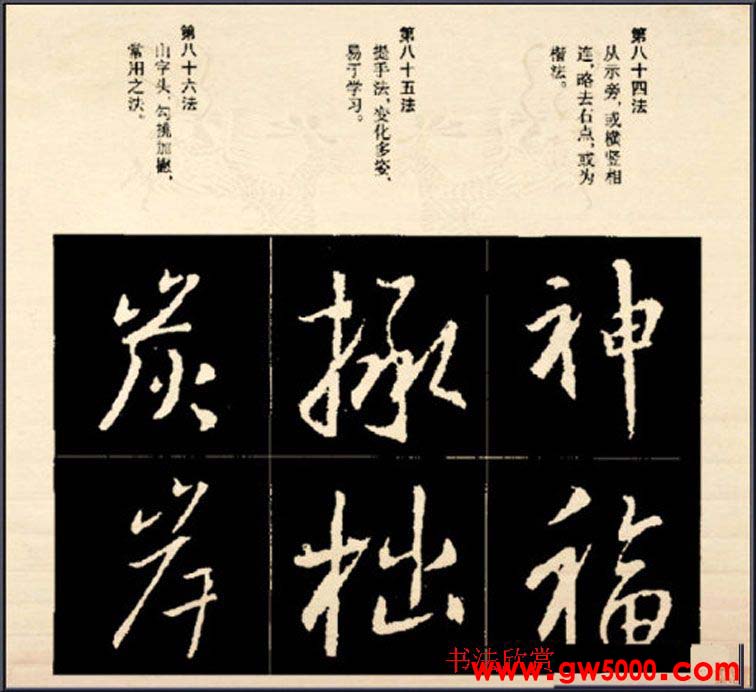 第八十四法
从示旁，或横竖相
连，略去右点，或为
楷法。
第八十五法
提手法，变化多姿，
易于学习。
第八十六法
山字头，勾挑加撇，
常用之法。
神
福
拙
炭
岸
书法欣赏
www.gw5000.com